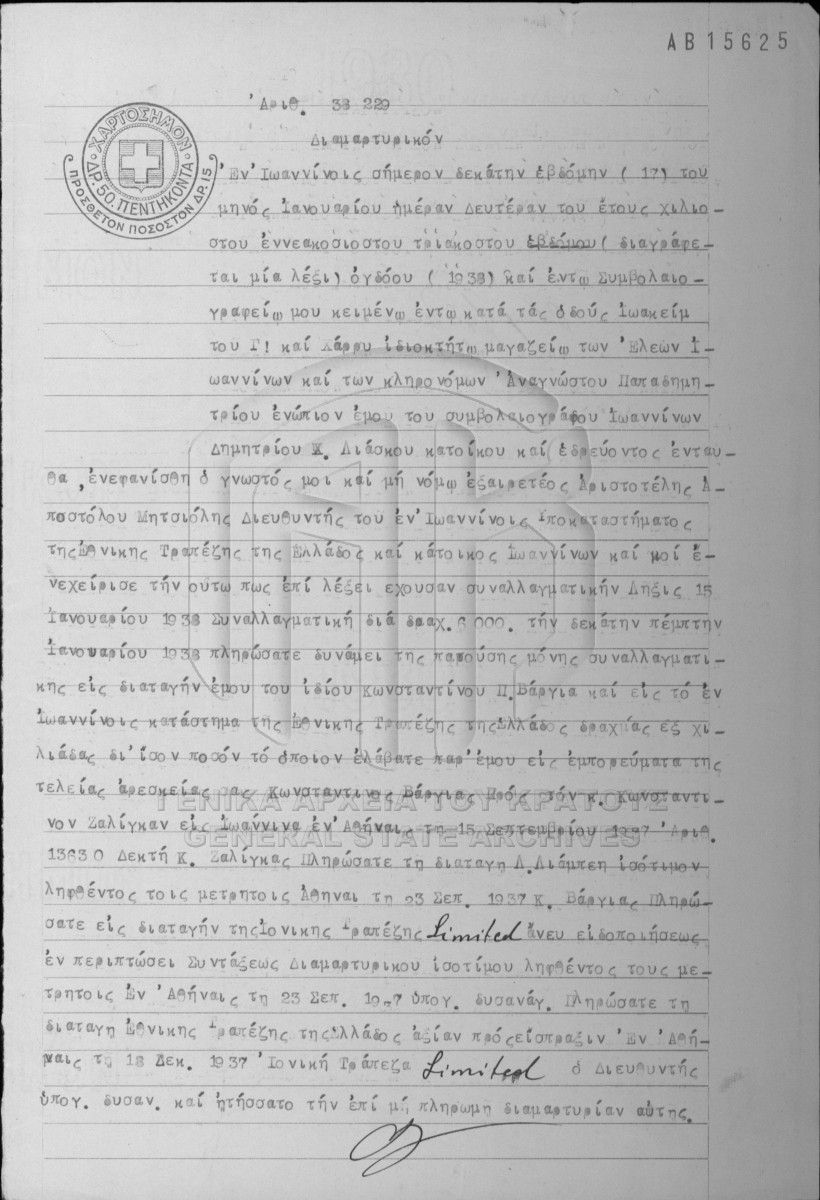 ΑΒ15625
Ἀριθ. 38 229
Διαμαρτυρικόν
ΧΑΡΤΟΣΗΜΟΝ
ΔΡ. 50. ΠΕΝΤΗΚΟΝΤΑ
ΠΡΟΣΘΕΤΟΝ ΠΟΣΟΣΤΟΝ ΔΡ. 15
Ἐν Ἰωαννίνοις σήμερον δεκάτην ἑβδόμην ( 17) του
μηνός Ἰανουαρίου ἡμέραν Δευτέραν του ἔτους χιλιο-
στου ἐννεακοσιοστου τριακοστου ἑβδόμου ( διαγράφε-
ται μία λέξι) ὀγδόου ( 1938) καί ἐντω Συμβολαιο-
γραφείω μου κειμένω ἐντω κατά τάς ὁδούς Ἰωακείμ
του Γ! καί Χάρρυ ἰδιοκτήτω μαγαζείω των Ἐλεών Ἰ-
ωαννίνων καί των κληρονόμων Ἀναγνώστου Παπαδημη-
τρίου ἐνώπιον ἐμου του συμβολαιογράφου Ἰωαννίνων
Δημητρίου Κ. Λιάσκου κατοίκου καί ἑδρεύοντος ἐνταυ-
θα ,ἐνεφανίσθη ὁ γνωστός μοι καί μή νόμω ἐξαιρετέος Ἀριστοτέλης Ἀ-
ποστόλου Μητσιόλης Διευθυντής του ἐν Ἰωαννίνοις Ὑποκαταστήματος
της Ἐθνικης Τραπέζης της Ἑλλάδος καί κάτοικος Ἰωαννίνων καί μοί ἐ-
νεχείρισε τήν οὑτω πως ἐπί λέξει εχουσαν συναλλαγματικήν Λῆξις 15
Ἰανουαρίου 1938 Συναλλαγματική διά δραχ. 6 000. τήν δεκάτην πέμπτην
Ἰανουαρίου 1938 πληρώσατε δυνάμει της παρούσης μόνης συναλλαγματι-
κης εἰς διαταγήν ἐμου του ἰδίου Κωνσταντίνου Π. Βάργια καί εἰς τό ἐν
Ἰωαννίνοις κατάστημα της Ἐθνικης Τραπέζης της Ἑλλάδος δραχμάς ἑξ χι-
λιάδας δι' ἴσον ποσόν τό ὁποιον ἐλάβατε παρ' ἐμου εἰς ἐμπορεύματα της
τελείας ἀρεσκείας σας Κωνσταντινος Βάργιας Πρός τόν κ. Κωνσταντι-
νον Ζαλίγκαν εἰς Ἰωάννινα ἐν Ἀθήναις τη 15 Σεπτεμβρίου 1937 Ἀριθ.
13630 Δεκτή Κ. Ζαλίγκας Πληρώσατε τη διαταγη Λ. Λιάμπεη ἰσότιμον
ληφθέντος τοις μετρητοις Ἀθηναι τη 23 Σεπ. 1937 Κ. Βάργιας Πληρώ-
σατε εἰς διαταγήν της Ἰονικης Τραπέζης Limited ἄνευ εἰδοποιήσεως
ἐν περιπτώσει Συντάξεως Διαμαρτυρικου ἰσοτίμου ληφθέντος τους με-
τρητοις Ἐν Ἀθήναις τη 23 Σεπ. 1937 ὑπογ. δυσανάγ. Πληρώσατε τη
διαταγη Ἐθνικης Τραπέζης της Ἑλλάδος ἀξίαν πρός εἴσπραξιν Ἐν Ἀθή-
ναις τη 18 Δεκ. 1937 Ἰονική Τράπεζα Limited ὁ Διευθυντής
ὑπογ. δυσαν. καί ἠτήσσατο τήν ἐπί μή πληρωμη διαμαρτυρίαν αὐτης.
ΓΕΝΙΚΑ ΑΡΧΕΙΑ ΤΟΥ ΚΡΑΤΟΥΣ
GENERAL STATE ARCHIVES